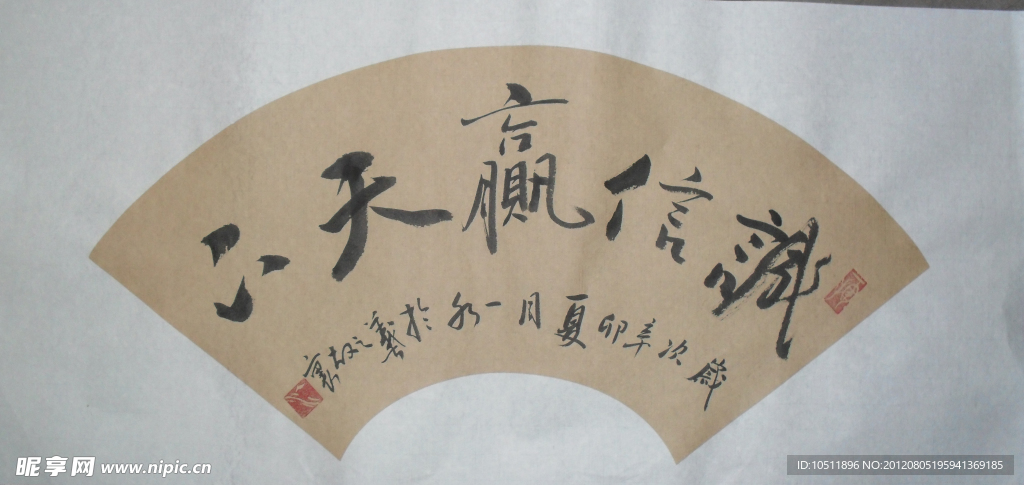 誠信贏天下
歲次辛卯夏月一水於羲之故裏
昵享网 www.nipic.cn
ID:10511896 NO:20120805195941369185